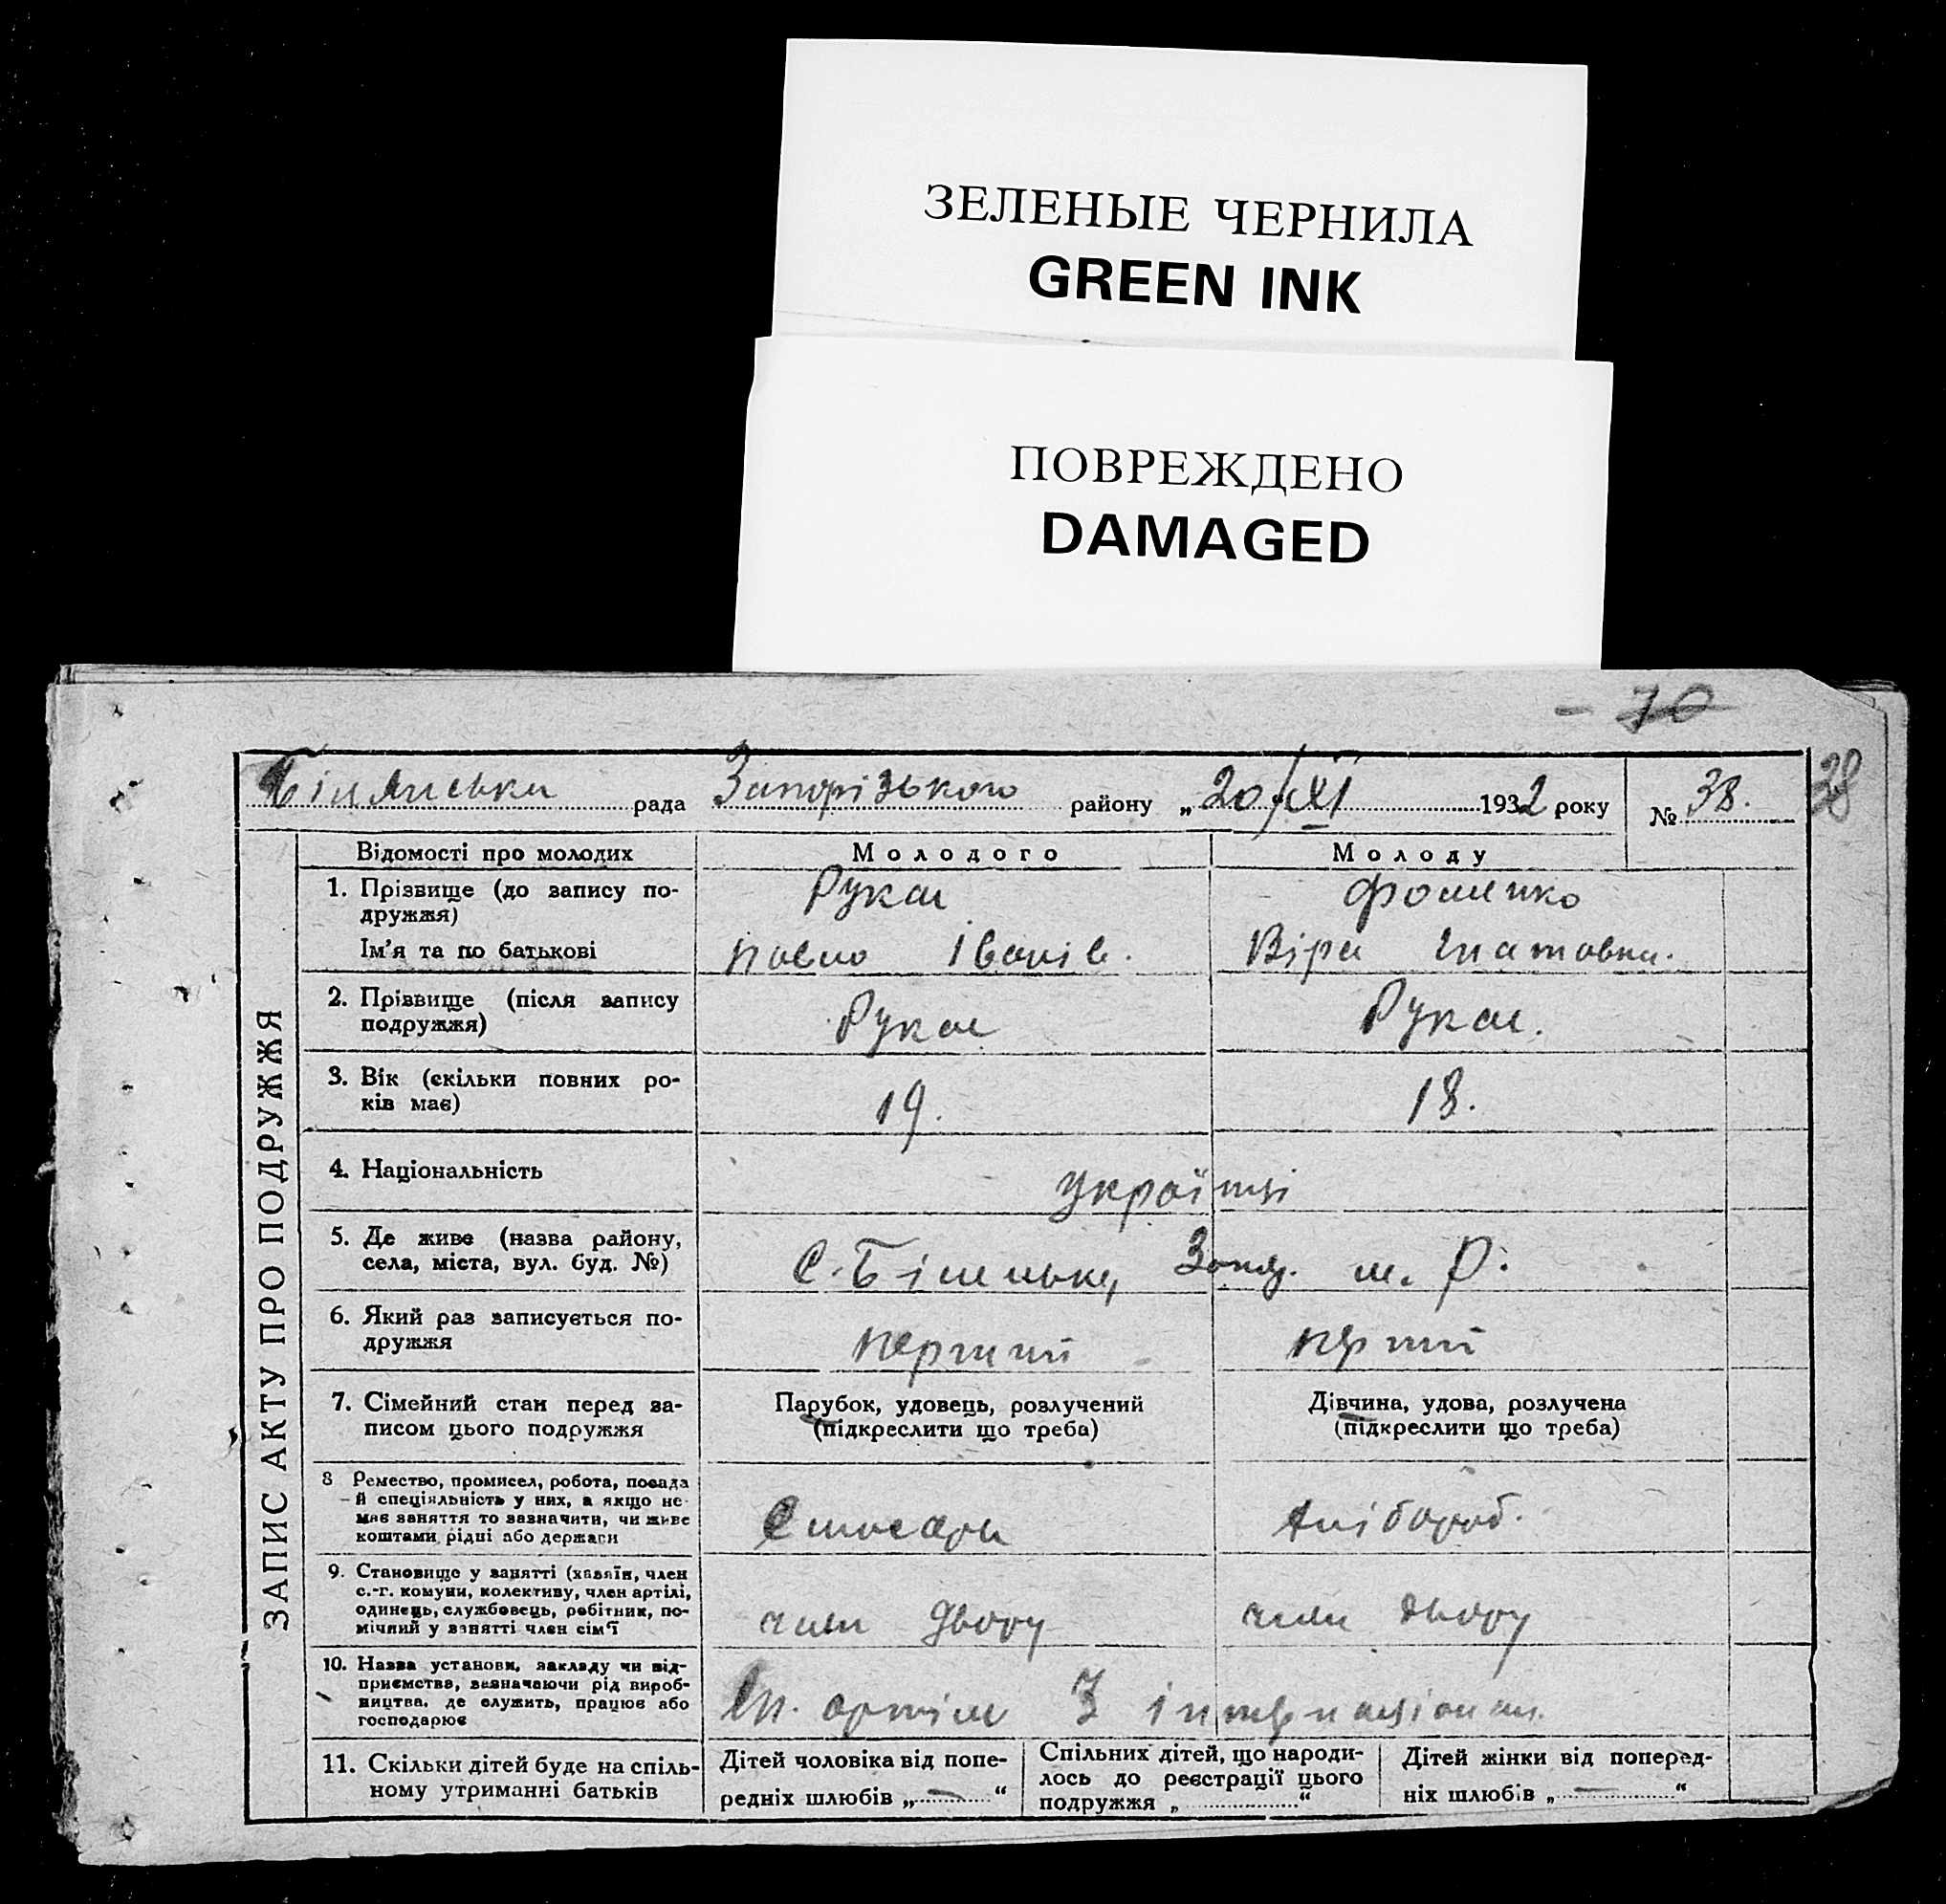 ЗЕЛЕНЫЕ ЧЕРНИЛА
GREEN INK
ПОВРЕЖДЕНО
DAMAGED
- 70
рада Запорізького району „20/XI 1932 року № 38.
38
ЗАПИС АКТУ ПРО ПОДРУЖЖЯ
Відомості про молодих Молодого Молоду
1. Прізвище (до запису по-
дружжя)
Рукас Фоменко
Ім'я та по батькові Павло Іванів. Віра
2. Прізвище (після запису
подружжя)
Рукас Рукас.
3. Вік (скільки повних ро-
ків має)
19. 18.
4. Національність
українці
5. Де живе (назва району,
села, міста, вул. буд. №)
с. Біленьке, Запор. м. Р.
6. Який раз записується по-
дружжя
перший перший
7. Сімейний стан перед за-
писом цього подружжя
Парубок, удовець, розлучений
(підкреслити що треба)
Дівчина, удова, розлучена
(підкреслити що треба)
8 Ремество, промисел, робота, посада
й спеціяльність у них, а якщо не
має заняття то зазначити, чи живе
коштами рідні або держави
Слюсарь хлібороб.
9. Становище у занятті (хазяїн, член
с.-г. комуни, колективу, член артілі,
одинець, службовець, робітник, по-
мічний у занятті член сім'ї
член двору член двору
10. Назва установи, закладу чи під-
приємства, зазначаючи рід вироб-
ництва, де служить, працює або
господарює
артіль 3 інтернаціонал.
11. Скільки дітей буде на спіль-
ному утриманні батьків
Дітей чоловіка від попе-
редніх шлюбів „ — “
Спільних дітей, що народи-
лось до реєстрації цього
подружжя „ “
Дітей жінки від поперед-
ніх шлюбів „ — “